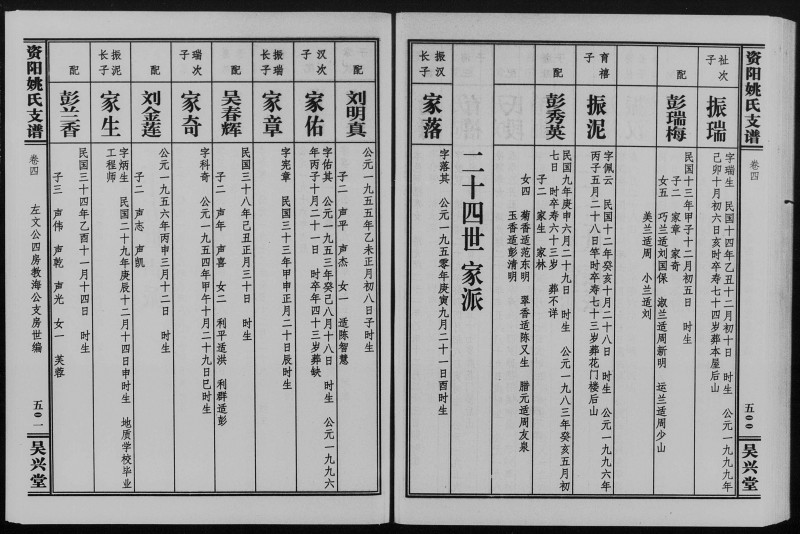 资阳姚氏支谱
卷四
五〇〇
吴兴堂
祉次
子
振瑞
字瑞生 民国十四年乙丑十二月初十日 时生 公元一九九九年
己卯十月初六日亥时卒寿七十四岁葬本屋后山
配
彭瑞梅
民国十三年甲子十二月初五日 时生
子二 家章 家奇
女五 巧兰适刘国保 淑兰适周新明 运兰适周少山
美兰适周 小兰适刘
育禧
子
振泥
字佩云 民国十二年癸亥十月二十八日 时生 公元一九九六年
丙子五月二十八日竿时卒寿七十三岁葬花门楼后山
配
彭秀英
民国九年庚申六月二十九日 时生 公元一九八三年癸亥五月初
七日 时卒寿六十三岁 葬不详
子二 家生 家林
女四 菊香适范东明 翠香适陈又生 腊元适周友泉
玉香适彭清明
二十四世 家派
振汉
长子
家落
字落其 公元一九五零年庚寅九月二十一日酉时生
配
刘明真
公元一九五五年乙未正月初八日子时生
子二 声平 声杰 女一 适陈智慧
汉次
子
家佑
字佑其 公元一九五三年癸己八月十八日 时生 公元一九九六
年丙子十月二十一日 时卒年四十三岁葬缺
振瑞
长子
家章
字宪章 民国三十三年甲申正月二十日辰时生
配
吴春辉
民国三十八年己丑正月三十日 时生
子二 声年 声喜 女二 利平适洪 利群适彭
瑞次
子
家奇
字科奇 公元一九五四年甲午十月二十九日巳时生
配
刘金莲
公元一九五六年丙申三月十二日 时生
子二 声志 声凯
振泥
长子
家生
字炳生 民国二十九年庚辰十二月十四日申时生 地质学校毕业
工程师
配
彭兰香
民国三十四年乙酉十一月十四日 时生
子三 声伟 声乾 声光 女一 芙蓉
资阳姚氏支谱
卷四
左文公四房教海公支房世编
五〇一
吴兴堂